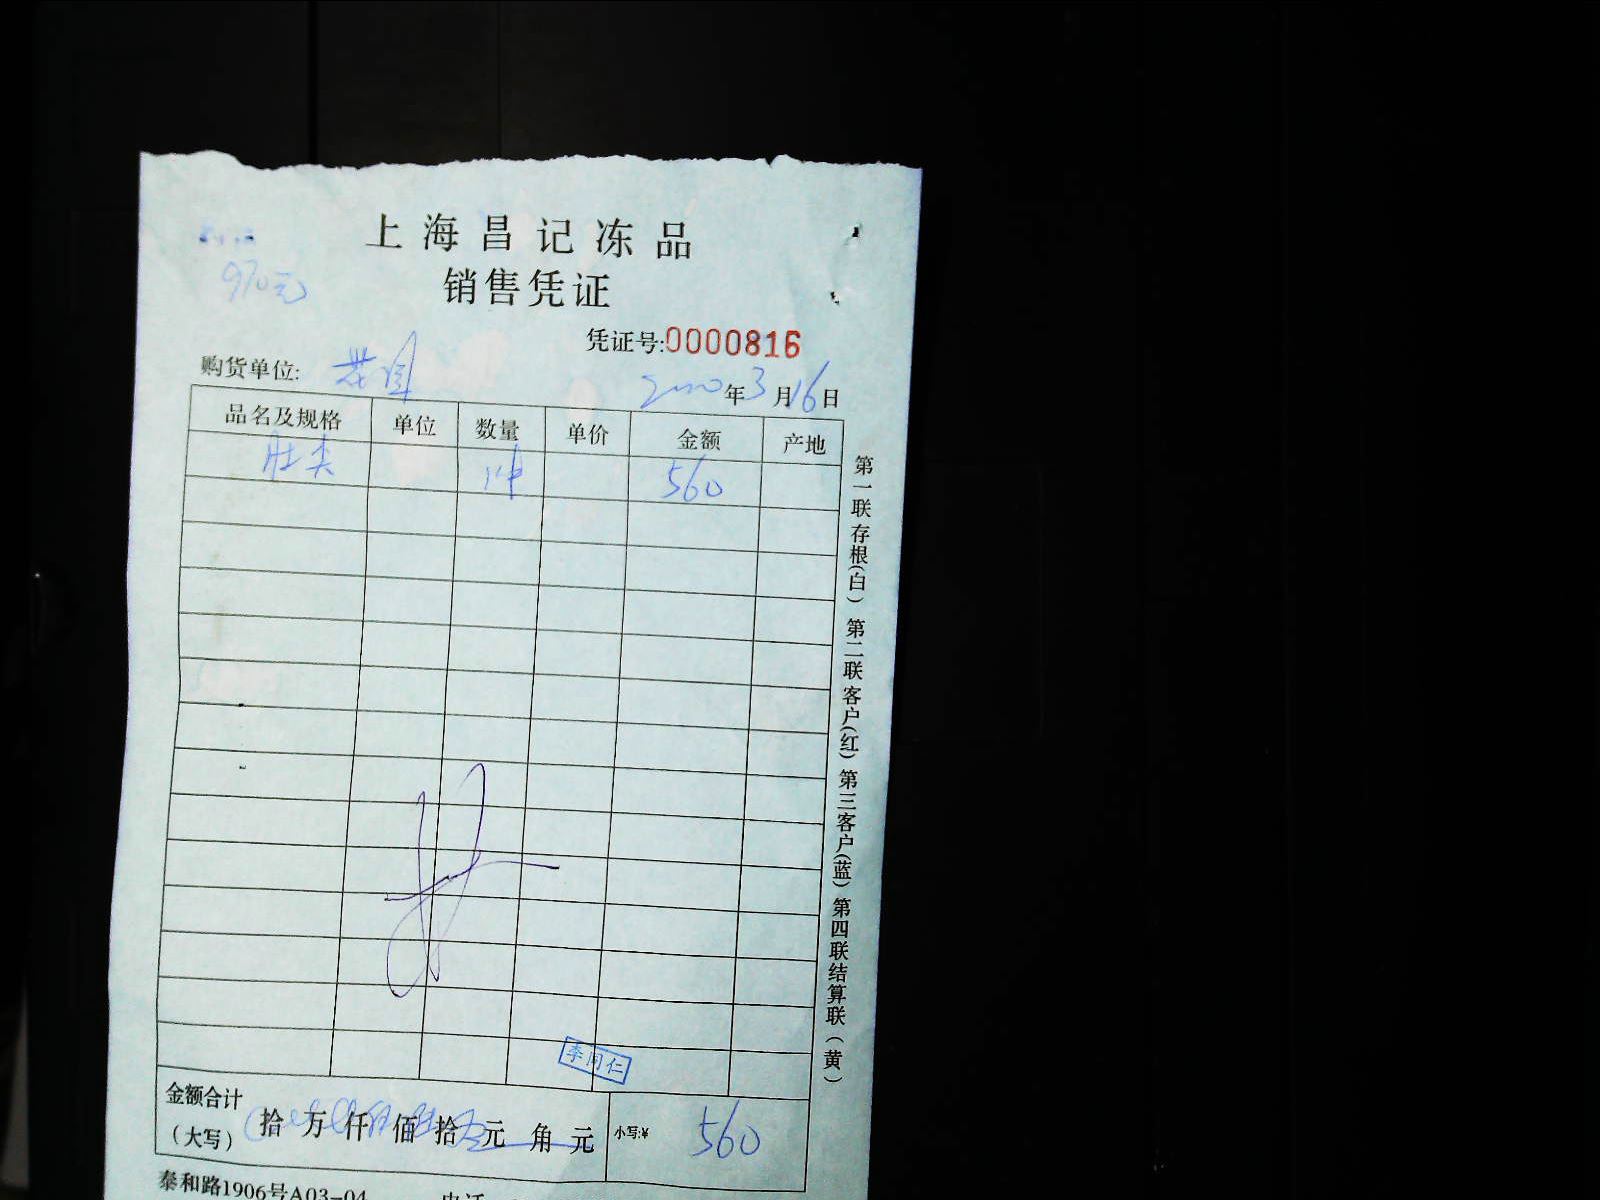 上海昌记冻品
销售凭证
970元
凭证号:0000816
购货单位:
2020年3月16日
品名及规格 单位 数量 单价 金额 产地
肚尖 1件 560
第一联存根(白) 第二联客户(红) 第三客户(蓝) 第四联结算联(黄)
李同仁
金额合计
(大写) 拾 万 仟 佰 拾 元 角 元 小写:¥ 560
泰和路1906号A03-04 电话